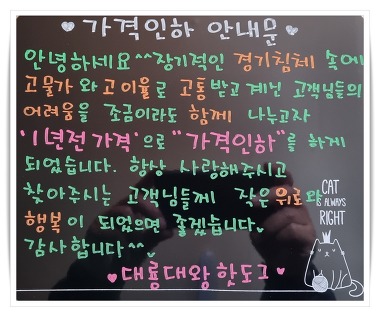 ♥ 가격인하 안내문 ♥
안녕하세요^^장기적인 경기침체 속에
고물가 와 고이율로 고통받고 계신 고객님들의
어려움을 조금이라도 함께 나누고자
'1년전 가격'으로 "가격인하"를 하게
되었습니다. 항상 사랑해주시고
찾아주시는 고객님들께 작은위로와
행복이 되었으면 좋겠습니다
감사합니다^^
♥대룡대왕핫도그♥
CAT
IS ALWAYS
RIGHT